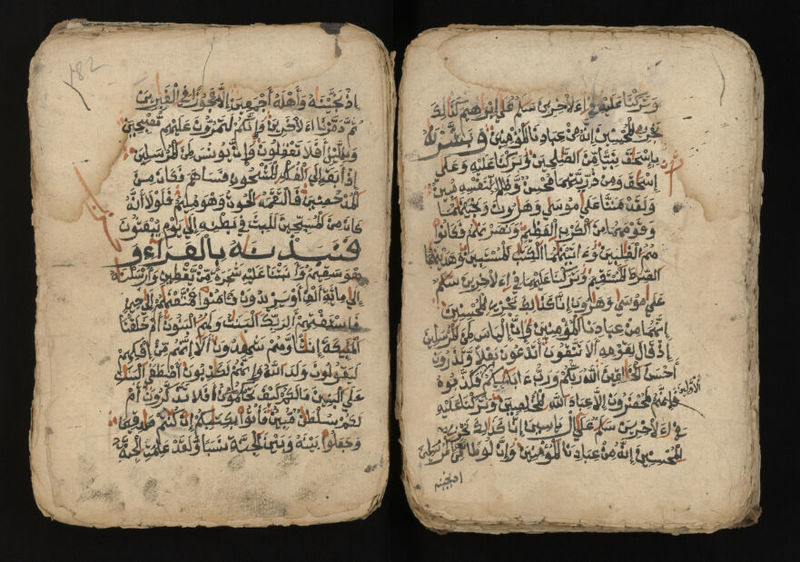 وَتَرَكْنَا عَلَيْهِ فِي اءَلاْخِرِينَ سَلَمٌ عَلَي إِبْرَاهِيمَ كَذَالِكَ
نَجْزِے اِ۬لْمُحْسِنِينَ إِنَّهُ مِنْ عِبَادِنَا اَ۬لْمُومِنِينَ وَبَشَّرْنَهُ
بِإِسْحَقَ نَبِيَّا مِّنَ اَ۬لصَّلِحِينَ وَبَرَكْنَا عَلَيْهِ وَعَلَي
إِسْحَقَ وَمِن ذُرِّيَّتِهِمَا مُحْسِنٌ وَظَالِمٌ لِّنَفْسِهِ مُبِينٌ
وَلَقَدْ مَنَنَّا عَلَي مُوسَي وَهَرُونَ وَنَجَّيْنَهُمَا
وَقَوْمَهُمَا مِنَ اَ۬لْكَرْبِ اِ۬لْعَظِيمِ وَنَصَرْنَهُمْ فَكَانُوا
هُمُ اُ۬لْغَلِبِينَ وَءَاتَيْنَهُمَا اَ۬لْكِتَبَ اَ۬لْمُسْتَبِينَ وَهَدَيْنَهُمَا
اَ۬لصِّرَطَ اَ۬لْمُسْتَقِيمَ وَتَرَكْنَا عَلَيْهِمَا فِي اءَلاْخِرِينَ سَلَمٌ
عَلَي مُوسَي وَهَرُونَ إِنَّا كَذَالِكَ نَجْزِے اِ۬لْمُحْسِنِينَ
إِنَّهُمَا مِنْ عِبَادِنَا اَ۬لْمُومِنِينَ وَإِنَّ إِلْيَاسَ لَمِنَ اَ۬لْمُرْسَلِينَ
إِذْ قَالَ لِقَوْمِهِ أَلاَ تَتَّقُونَ أَتَدْعُونَ بَعْلاً وَتَذَرُونَ
أَحْسَنَ اَ۬لْخَلِقِينَ اَللَّهُ رَبُّكُمْ وَرَبُّ ءَابَائِكُمُ فَكَذَّبُوهُ
الاَوَّلِينَ
فَإِنَّهُمْ لَمُحْضَرُونَ إِلاَّ عِبَادَ اَللَّهِ اِ۬لْمُخْلَصِينَ وَتَرَكْنَا عَلَيْهِ
فِي اءَلاْخِرِينَ سَلَمٌ عَلَي ءَالِ يَاسِينَ إِنَّا كَذَالِكَ نَجْزِے
اِ۬لْمُحْسِنِينَ إِنَّهُ مِنْ عِبَادِنَا اَ۬لْمُومِنِينَ وَإِنَّ لُوطًا لَّمِنَ اَ۬لْمُرْسَلِينَ
اذ نجينه
182
إِذْ نَجَّيْنَهُ وَأَهْلَهُ أَجْمَعِينَ إِلاَّ عَجُوزًا فِي اِ۬لْغَبِرِينَ
ثُمَّ دَمَّرْنَا اَءَلاْخَرِينَ وَإِنَّكُمْ لَتَمُرُّونَ عَلَيْهِم مُّصْبِحِينَ
وَبِالَّيْلِ أَفَلاَ تَعْقِلُونَ وَإِنَّ يُونُسَ لَمِنَ اَ۬لْمُرْسَلِينَ
إِذْ أَبَقَ إِلَي اَ۬لْفُلْكِ اِ۬لْمَشْحُونِ فَسَاهَمَ فَكَانَ مِنَ
اَ۬لْمُدْحَضِينَ فَالْتَقَمَهُ اُ۬لْحُوتُ وَهُوَ مُلِيمٌ فَلَوْلاَ أَنَّهُ
كَانَ مِنَ اَ۬لْمُسَبِّحِينَ لَلَبِثَ فِي بَطْنِهِ إِلَي يَوْمِ يُبْعَثُونَ
فَنَبَذْنَهُ بِالْعَرَاءِ وَ
هُوَ سَقِيمٌ وَأَنبَتْنَا عَلَيْهِ شَجَرَةً مِّن يَّقْطِينٍ وَأَرْسَلْنَهُ
إِلَي مِائَةِ أَلْفٍ أَوْ يَزِيدُونَ فَـَٔامَنُوا فَمَتَّعْنَهُمُ إِلَي حِينٍ
فَاسْتَفْتِهِمُ أَلِرَبِّكَ اَ۬لْبَنَتُ وَلَهُمُ اُ۬لْبَنُونَ أَمْ خَلَقْنَا
اَ۬لْمَلَئِكَةَ إِنَثًا وَهُمْ شَهِدُونَ أَلاَ إِنَّهُم مِّنِ اِفْكِهِمْ
لَيَقُولُونَ وَلَدَ اَللَّهُ وَإِنَّهُمْ لَكَذِبُونَ أَصْطَفَي اَ۬لْبَنَتِ
عَلَي اَ۬لْبَنِينَ مَا لَكُمْ كَيْفَ تَحْكُمُونَ أَفَلاَ تَذَّكَّرُونَ أَمْ
لَكُمْ سُلْطَنٌ مُّبِينٌ فَاتُوا بِكِتَبِكُمُ إِن كُنتُمْ صَدِقِينَ
وَجَعَلُوا بَيْنَهُ وَبَيْنَ اَ۬لْجِنَّةِ نَسَبًا وَلَقَدْ عَلِمَتِ اِ۬لْجِنَّةُ